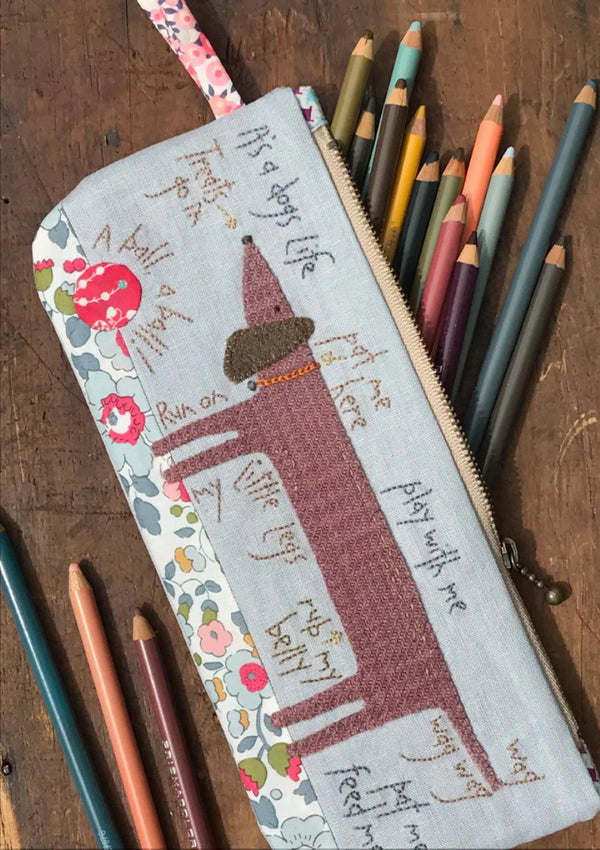 It's a dogs life
Treats
go in
A ball
a ball!
pat me
here
Run on
my
little legs
play with me
rub my
belly!
wag wag
wag
pat me
feed me